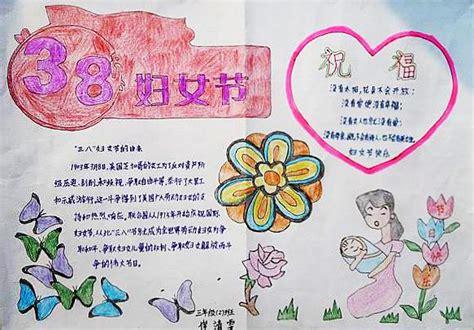 38妇女节
"三八"妇女节的由来
1909年3月8日,美国芝加哥的女工为了反对资产阶
级压迫、剥削和歧视,争取自由平等,举行了大罢工
和示威游行,这一斗争得到了美国广大劳动妇女的支
持和热烈响应。联合国从1975年开始庆祝国际
妇女节,从此"三八"节已成为全世界劳动妇女为争
取和平、争取妇女儿童的权利、争取妇女解放而斗
争的伟大节日。
祝福
没有太阳,花朵不会开放;
没有爱便没有幸福;
没有女人也就没有爱;
没有母亲,既不会有诗人,也不会有英雄
妇女节快乐
节日快乐
三年级(2)班